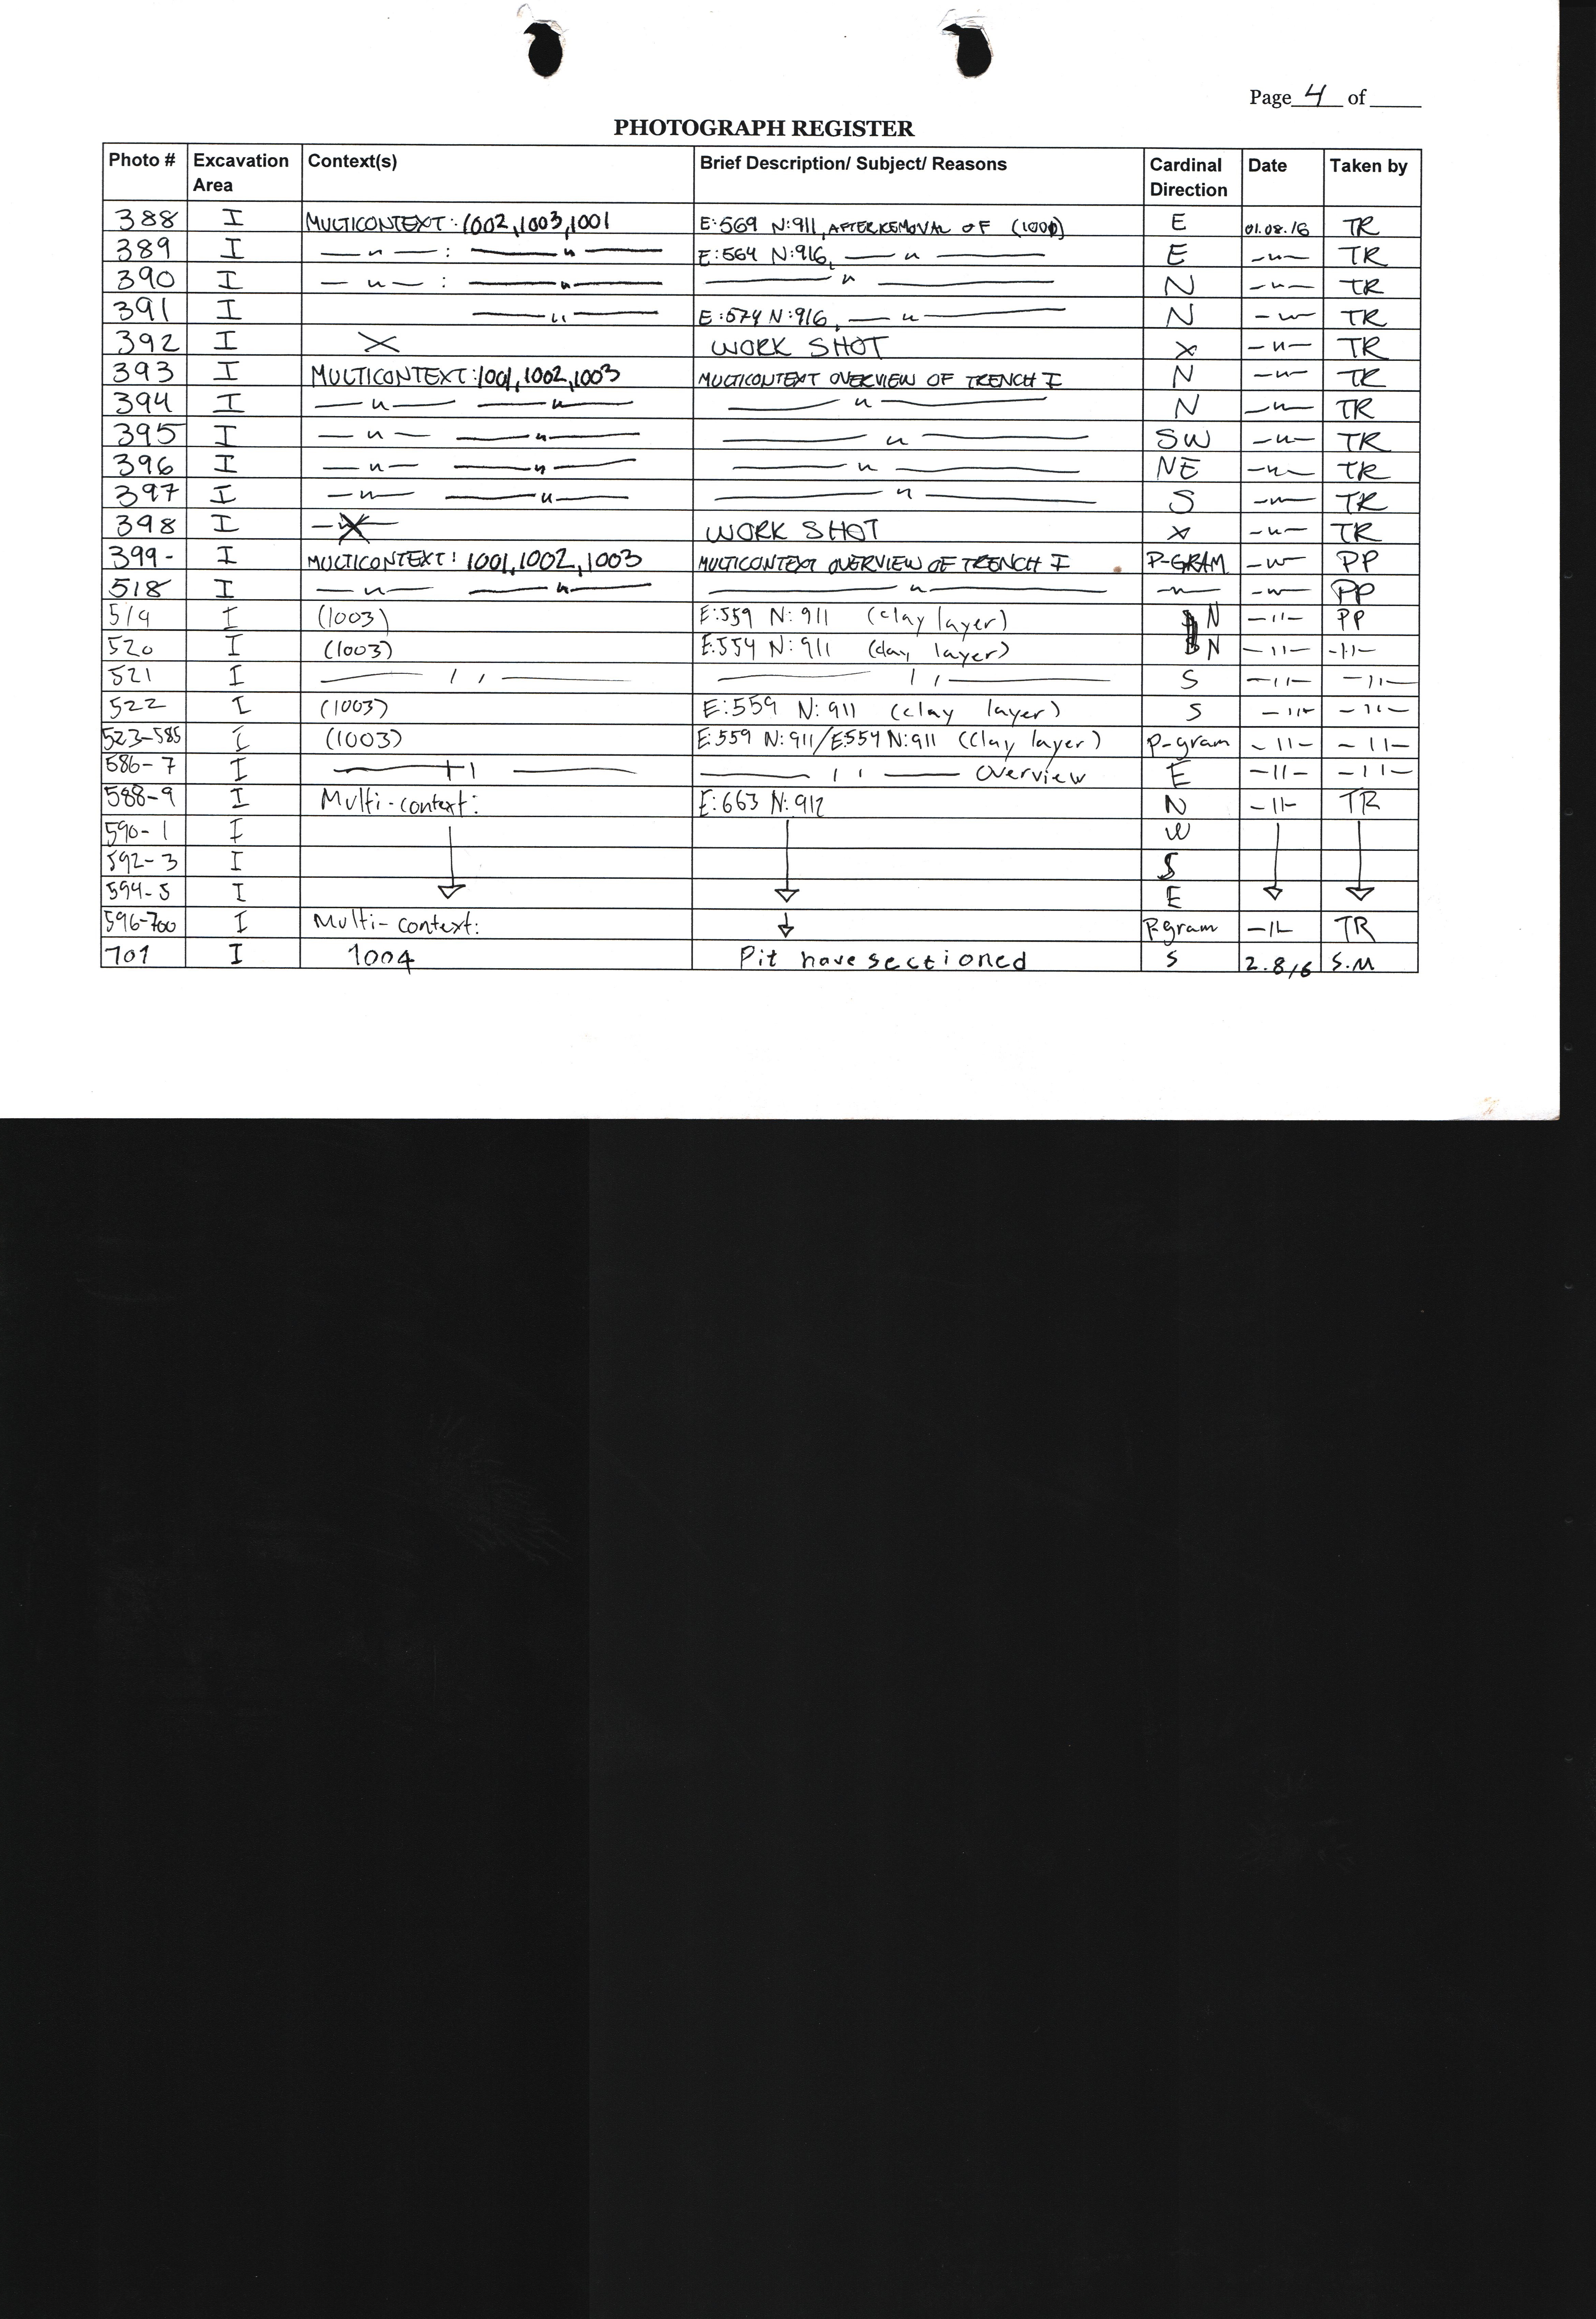 Page 4 of
PHOTOGRAPH REGISTER
Photo # Excavation Area Context(s) Brief Description/ Subject/ Reasons Cardinal Direction Date Taken by
388 I MULTICONTEXT: 1002, 1003, 1001 E:569 N:911, AFTER REMOVAL OF (1000) E 01.08.16 TR
389 I — " — : — " — E:564 N:916, — " — E — " — TR
390 I — " — : — " — — " — N — " — TR
391 I — " — E:574 N:916, — " — N — " — TR
392 I X WORK SHOT X — " — TR
393 I MULTICONTEXT: 1001, 1002, 1003 MULTICONTEXT OVERVIEW OF TRENCH I N — " — TR
394 I — " — — " — — " — N — " — TR
395 I — " — — " — — " — SW — " — TR
396 I — " — — " — — " — NE — " — TR
397 I — " — — " — — " — S — " — TR
398 I X WORK SHOT X — " — TR
399- I MULTICONTEXT: 1001, 1002, 1003 MULTICONTEXT OVERVIEW OF TRENCH I P-GRAM — " — PP
518 I — " — — " — — " — — " — — " — PP
519 I (1003) E:559 N:911 (clay layer) N — " — PP
520 I (1003) E:554 N:911 (clay layer) N — " — — " —
521 I — " — — " — S — " — — " —
522 I (1003) E:559 N:911 (clay layer) S — " — — " —
523-585 I (1003) E:559 N:911/E:554 N:911 (clay layer) P-gram — " — — " —
586-7 I — " — — " — Overview E — " — — " —
588-9 I Multi-context: E:663 N:912 N — " — TR
590-1 I W
592-3 I S
594-5 I E
596-700 I Multi-context: P-gram — " — TR
701 I 1004 Pit have sectioned S 2.8/6 S.M